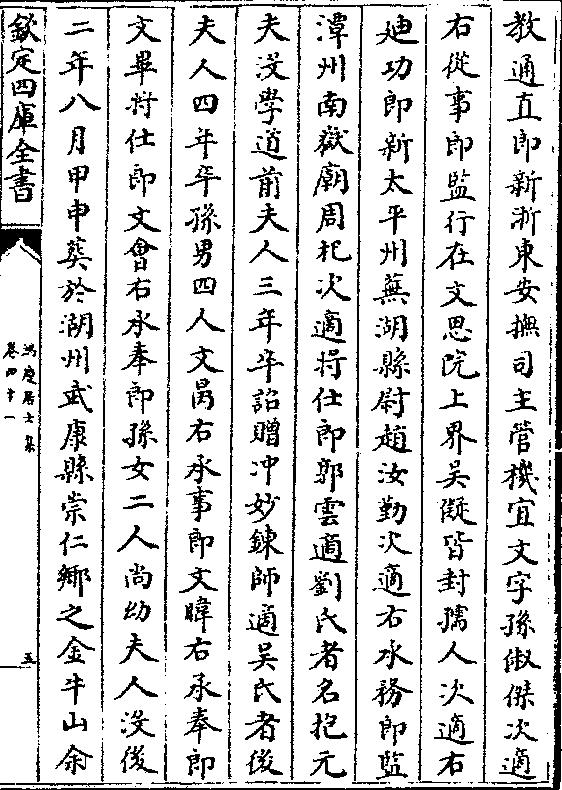 教通直郎新浙東安撫司主管機宜文字孫俶傑次適
右從事郎監行在文思院上界吳儗皆封孺人次適右
廸功郎新太平州蕪湖縣尉趙汝勤次適右承務郎監
潭州南嶽廟周杞次適將仕郎郭雲適劉氏者名抱元
夫没學道前夫人三年卒詔贈冲妙鍊師適吳氏者後
夫人四年卒孫男四人文昺右承事郎文暐右承奉郎
文畢將仕郎文會右承奉郎孫女二人尚幼夫人没後
二年八月甲申葬於湖州武康縣崇仁鄉之金牛山余
欽定四庫全書
鴻慶居士集
卷四十一
五